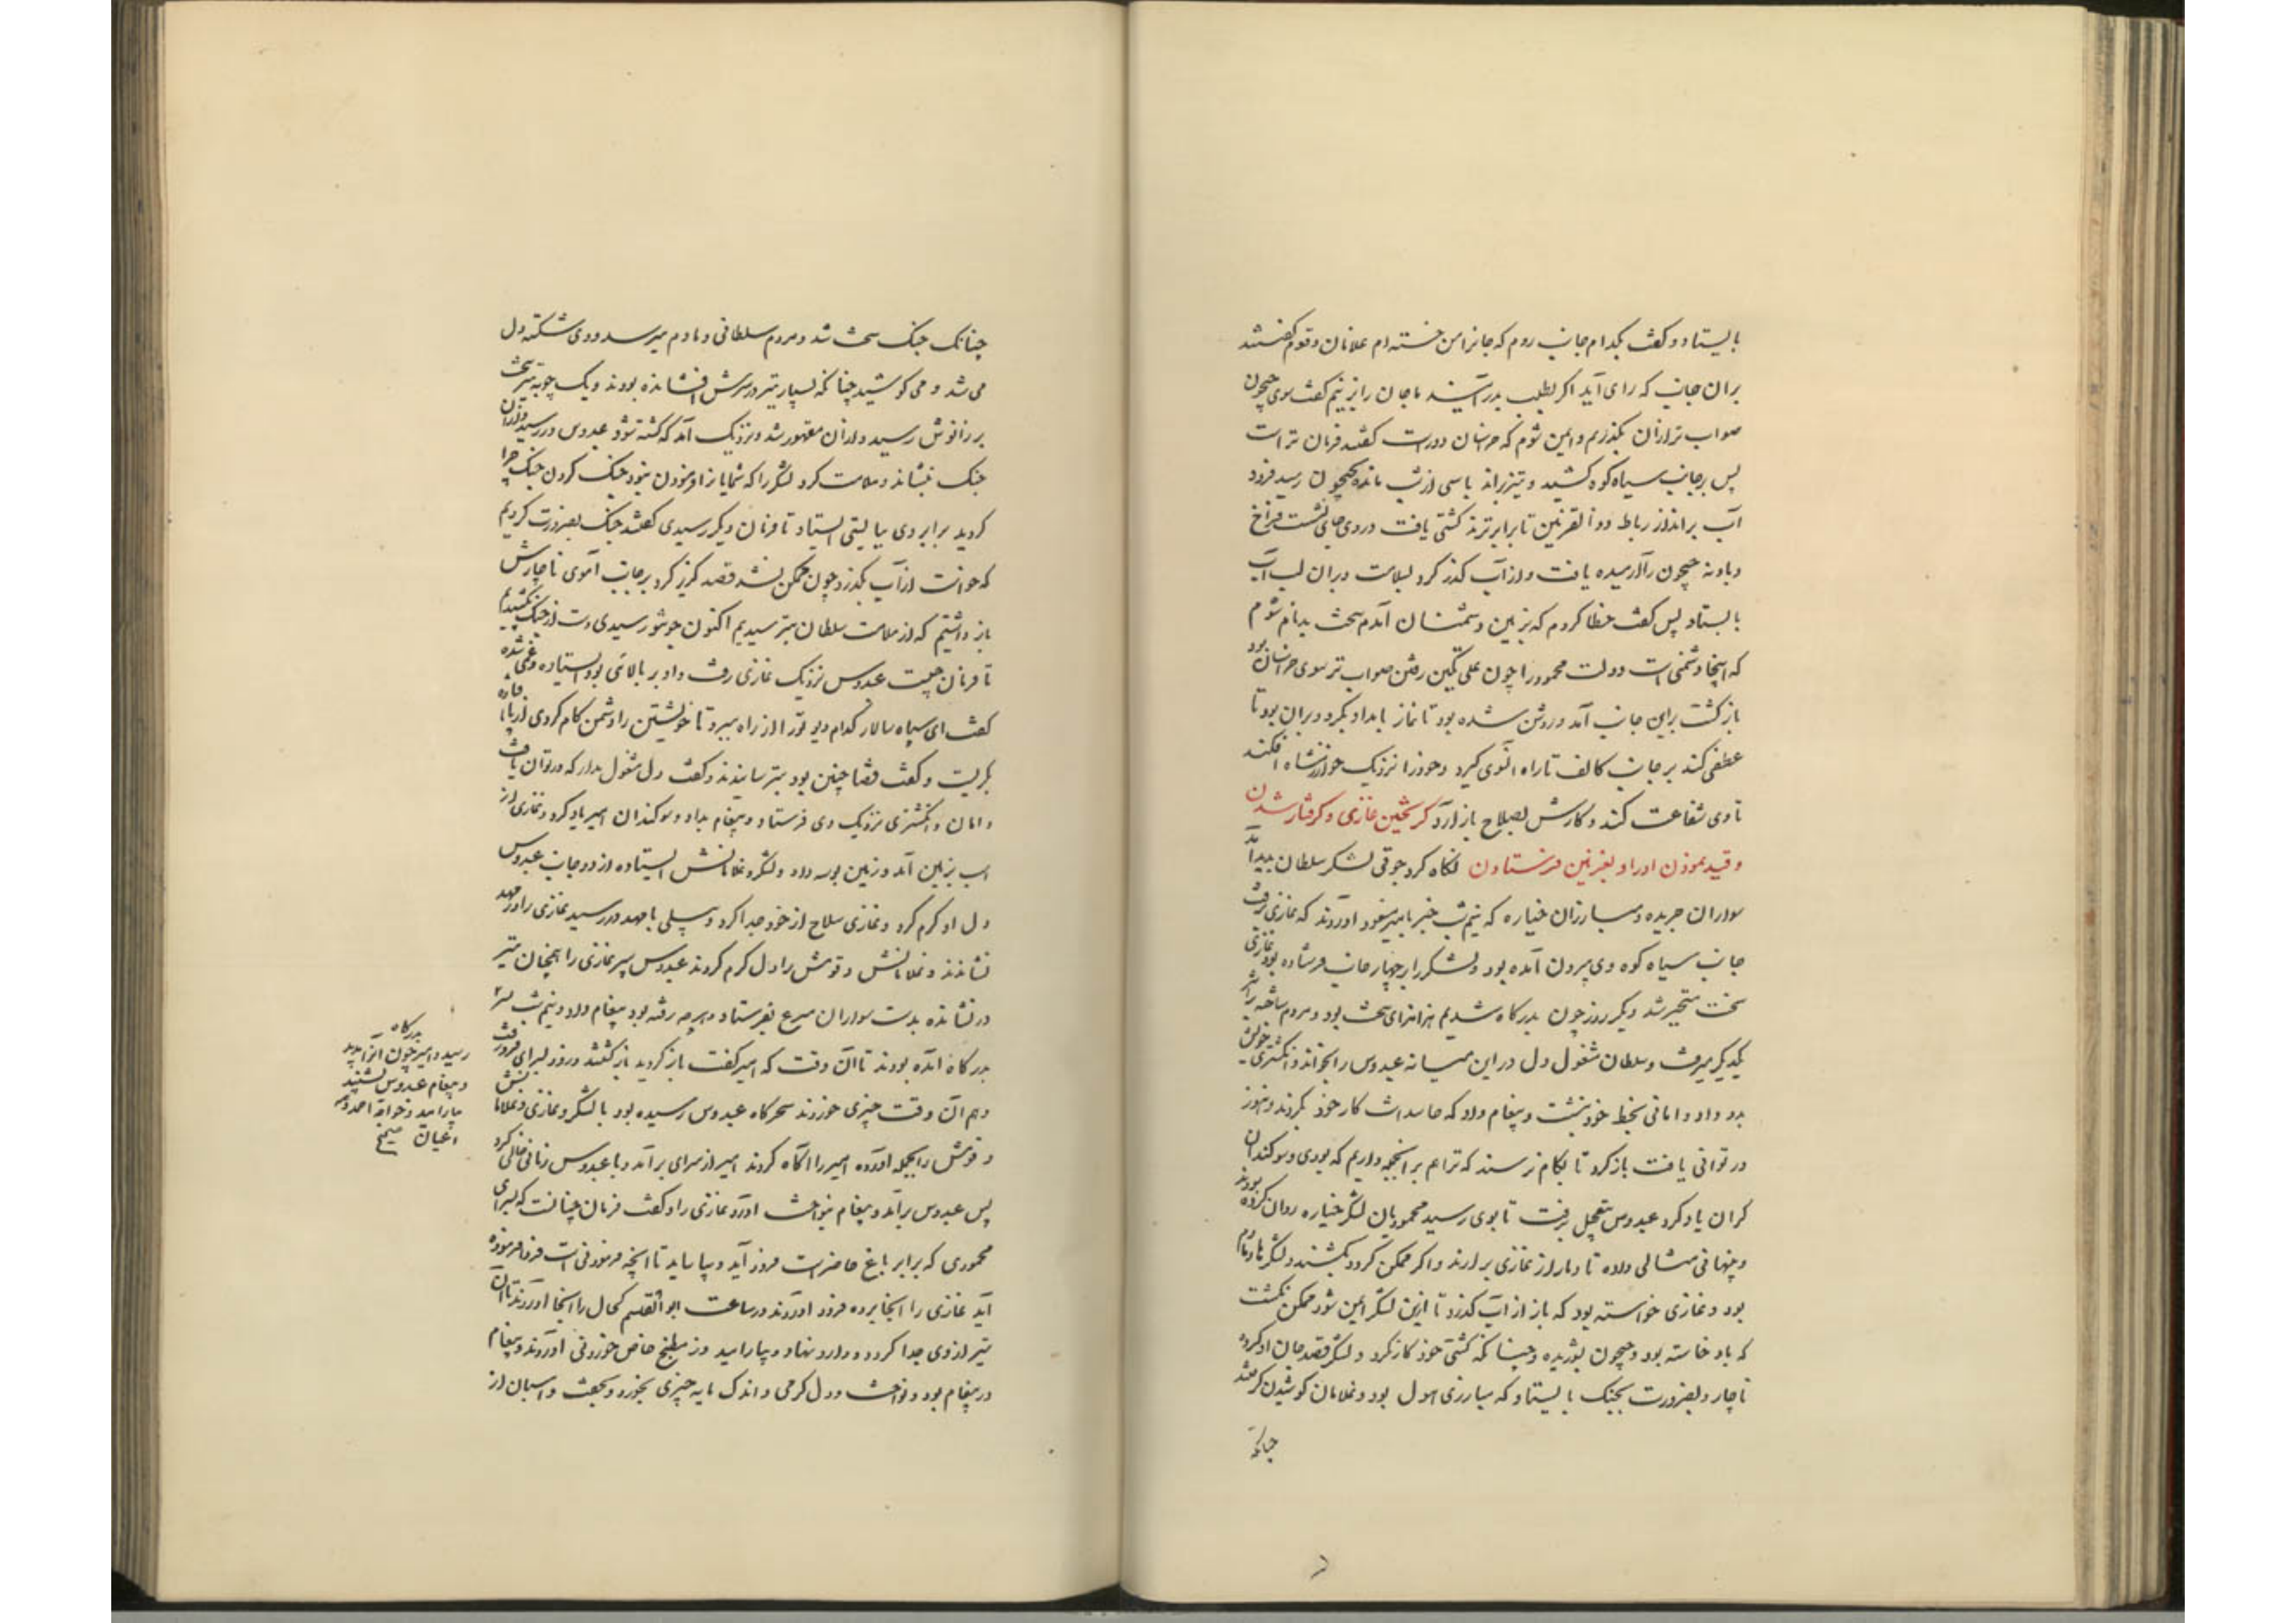 بایستاد و گفت بکدام جانب روم که جانرا من خسته‌ام غلامان و قوم گفتند
بران جانب که رای آید اگر بطلب بدر آیند ما جان را بزنیم گفت سوی جیحون
صواب‌تر ازان بگذرم و ایمن شوم که خراسان دورست گفتند فرمان تراست
پس بر جانب سیاه کوه کشید و تیز براند پاسی از شب مانده بجیحون رسید فرود
آب براند از رباط ذوالقرنین تا برابر ترمذ کشتی یافت در وی جای نشست فراخ
و باد نه جیحون را آرمیده یافت و از آب گذر کرد بسلامت و بران لب آب
بایستاد پس گفت خطا کردم که بزمین دشمنان آمدم سخت بدنام شوم
که اینجا دشمنی است دولت محمود را چون علی تکین رفتن صواب‌تر سوی خراسان بود
بازگشت برین جانب آمد و روشن شده بود تا نماز بامداد بکرد و بران بود تا
عطفی کند بر جانب کالف تا راه آموی گیرد و خود را نزدیک خوارزمشاه افکند
تا وی شفاعت کند و کارش بصلاح باز آرد گریختن غازی و گرفتار شدن
و قید نمودن او را و بغزنین فرستادن نگاه کرد جوقی لشکر سلطان پدید آمد
سواران جریده و مبارزان خیاره که نیم شب خبر بامیر مسعود آوردند که غازی برفت
جانب سیاه کوه وی بیرون آمده بود و لشکر را بچهار جانب فرستاده بود غازی
سخت متحیر شد دیگر روز چون بدرگاه شدیم هزاهزی سخت بود و مردم ساخته بر اثر
یکدیگر میرفت و سلطان مشغول دل در این میانه عبدوس را بخواند و انگشتری خویش
بدو داد و امانی بخط خود نبشت و پیغام داد که حاسدانت کار خود بکردند و هنوز
در توانی یافت بازگرد تا بکام نرسند که ترا هم برانجمله داریم که بودی و سوگندان
گران یاد کرد عبدوس بتعجیل برفت تا بوی رسید محمودیان لشکر خیاره روان کرده بودند
و پنهانی مثالی داده تا دمار از غازی برآرند و اگر ممکن گردد بکشند و لشکرها دمادم
بود و غازی خواسته بود که باز از آب گذرد تا ازین لشکر ایمن شود ممکن نگشت
که باد خاسته بود و جیحون بشوریده و چنانکه کشتی خود کار نکرد و لشکر قصد جان او کرده
ناچار و بضرورت بجنگ بایستاد که مبارزی هول بود و غلامان کوشیدن گرفتند
چنانکه
چنانک جنگ سخت شد و مردم سلطانی دمادم میرسد و وی شکسته‌دل
می‌شد و می‌کوشید چنانکه بسیار تیر در سپرش افشانده بودند و یک چوبه تیر سخت
بر زانوش رسید و ازان مقهور شد و نزدیک آمد که کشته شود عبدوس در رسید و ازان
جنگ بنشاند و ملامت کرد لشکر را که شمایان را فرمودن نبود جنگ کردن جنگ چرا
کردید برابر وی ببایستی ایستاد تا فرمان دیگر رسیدی گفتند جنگ بضرورت کردیم
که خواست از آب بگذرد چون ممکن نشد قصد گریز کرد بر جانب آموی ناچارش
باز داشتیم که از ملامت سلطان بترسیدیم اکنون چو تو رسیدی دست از جنگ بکشیدیم
تا فرمان چیست عبدوس نزدیک غازی رفت و او بر بالائی بود ایستاده و غمی شده
گفت ای سپاه سالار کدام دیو ترا از راه ببرد تا خویشتن را دشمن کام کردی از پای افتاده
بگریست و گفت قضا چنین بود بترسانیدند و گفت دل مشغول مدار که در توان یافت
و امان و انگشتری نزدیک وی فرستاد و پیغام بداد و سوگندان امیر یاد کرد و غازی از
اسب بزمین آمد و زمین بوسه داد و لشکر و غلامانش ایستاده از دو جانب عبدوس
دل او گرم کرد و غازی سلاح از خود جدا کرد و پیلی با مهد در رسید غازی را در مهد
نشاندند و غلامانش و قومش را دل گرم کردند عبدوس سپر غازی را همچنان تیر
در نشانده بدست سواران مسرع بفرستاد و هرچه رفته بود پیغام داد و نیم شب سپر
بدرگاه آمده بودند تا آن وقت که امیر گفت بازگردید بازگشتند و زود بسرای فرورفت
و هم آن وقت چیزی خوردند سحرگاه عبدوس رسیده بود با لشکر و غازی و غلامانش
و قومش را بجمله آورده امیر را آگاه کردند امیر از سرای برآمد و با عبدوس زمانی خالی کرد
پس عبدوس برآمد و پیغام بنواخت آورد غازی را و گفت فرمان چنانست که بسرای
محمودی که برابر باغ حاضرست فرود آید و بیاساید تا آنچه فرمودنی است فردا فرموده
آید غازی را آنجا برده فرود آوردند در ساعت ابوالقسم کحال را آنجا آوردند تا آن
تیر از وی جدا کرد و دارو نهاد و بیارامید و از مطبخ خاص خوردنی آوردند و پیغام
در پیغام بود و نواخت و دل گرمی و اندک مایه چیزی بخورد و بخفت و اسبان از
بدرگاه
رسید و امیر چون آنرا بدید
و پیغام عبدوس بشنید
بیارامید و خواجه احمد و همه
اعیان صح